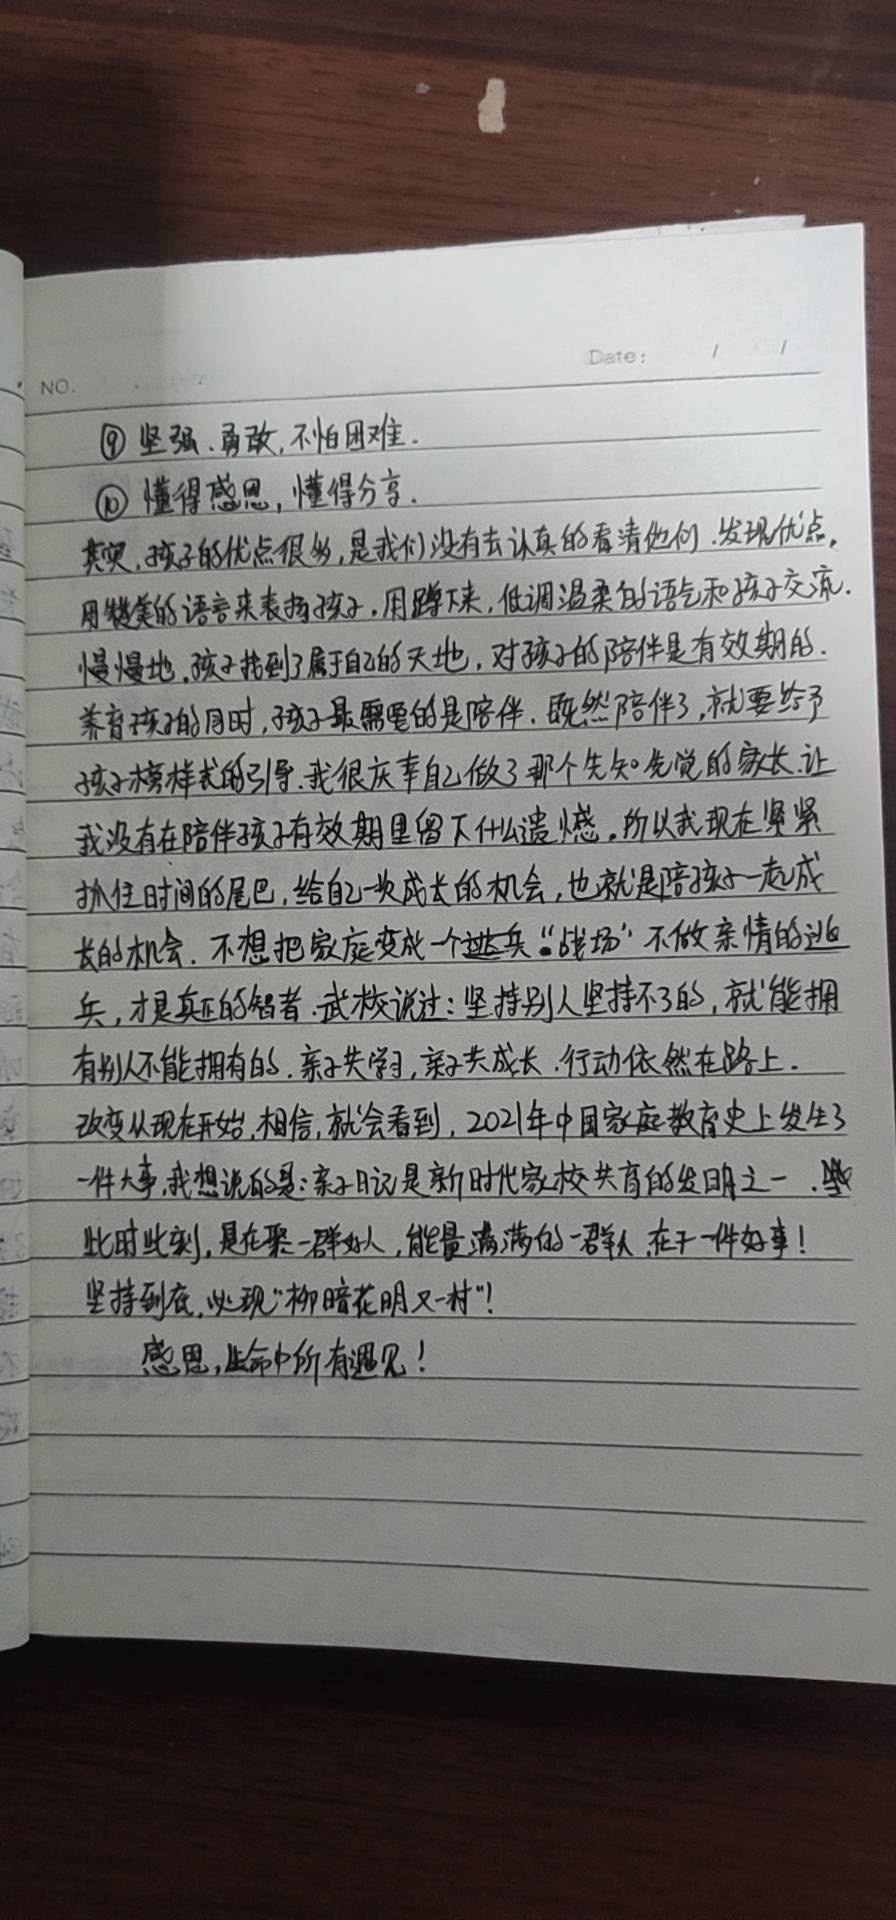 NO.
Date: / /
⑨ 坚强、勇敢,不怕困难.
⑩ 懂得感恩,懂得分享.
其实,孩子的优点很多,是我们没有去认真的看清他们.发现优点,
用赞美的语言来表扬孩子.用蹲下来,低调温柔的语气和孩子交流.
慢慢地,孩子找到了属于自己的天地,对孩子的陪伴是有效期的.
养育孩子的同时,孩子最需要的是陪伴.既然陪伴了,就要给予
孩子榜样式的引导.我很庆幸自己做了那个先知先觉的家长.让
我没有在陪伴孩子有效期里留下什么遗憾.所以我现在紧紧
抓住时间的尾巴,给自己一次成长的机会,也就是陪孩子一起成
长的机会.不想把家庭变成一个逃兵“战场”不做亲情的逃
兵,才是真正的智者.武校说过:坚持别人坚持不了的,就能拥
有别人不能拥有的.亲子共学习,亲子共成长.行动依然在路上.
改变从现在开始,相信,就会看到,2021年中国家庭教育史上发生了
一件大事,我想说的是:亲子日记是新时代家校共育的发明之一.
此时此刻,是在聚一群好人,能量满满的一群人,在干一件好事!
坚持到底,必现“柳暗花明又一村”!
感恩,生命中所有遇见!